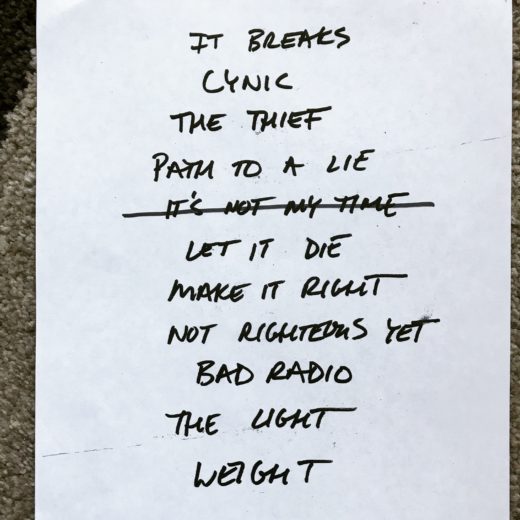 IT BREAKS
CYNIC
THE THIEF
PATH TO A LIE
IT'S NOT MY TIME
LET IT DIE
MAKE IT RIGHT
NOT RIGHTEOUS YET
BAD RADIO
THE LIGHT
WEIGHT